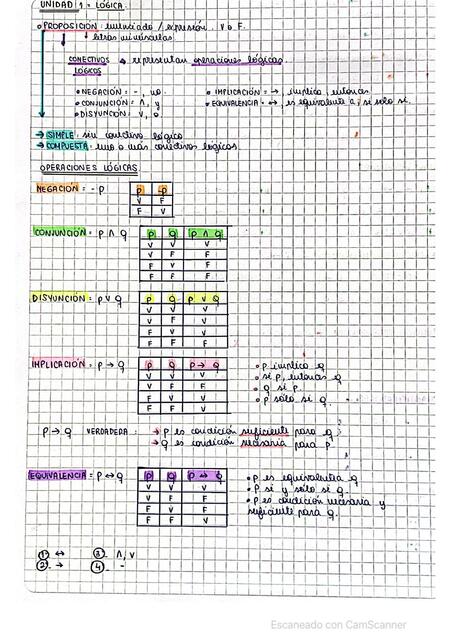 UNIDAD 1 = LÓGICA.
PROPOSICIÓN enunciado / expresión. V o F.
letras minúsculas
CONECTIVOS LÓGICOS → representan operaciones lógicas.
• NEGACIÓN = -, no. • IMPLICACIÓN = →, implica, entonces
• CONJUNCIÓN = ∧, y • EQUIVALENCIA = ↔, es equivalente a, si solo si.
• DISYUNCIÓN = ∨, o
→ SIMPLE = sin conectivo lógico
→ COMPUESTA = uno o más conectivos lógicos.
OPERACIONES LÓGICAS.
NEGACIÓN = -p
p -p
V F
F V
CONJUNCIÓN = p ∧ q
p q p ∧ q
V V V
V F F
F V F
F F F
DISYUNCIÓN = p ∨ q
p q p ∨ q
V V V
V F V
F V V
F F F
IMPLICACIÓN = p → q
p q p → q
V V V
V F F
F V V
F F V
• p implica q
• si p, entonces q
• q si p.
• p sólo si q.
p → q VERDADERA : → p es condición suficiente para q
→ q es condición necesaria para p.
EQUIVALENCIA = p ↔ q
p q p ↔ q
V V V
V F F
F V F
F F V
• p es equivalente a q
• p si y solo si q.
• p es condición necesaria y
suficiente para q.
① ↔ ③ ∧, ∨
② → ④ -
Escaneado con CamScanner